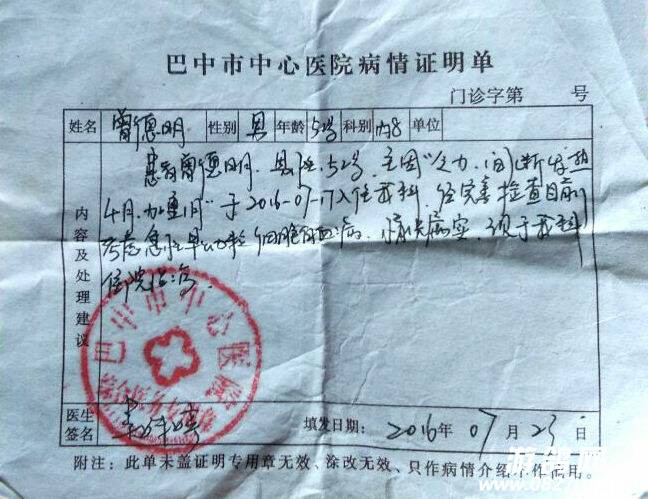 巴中市中心医院病情证明单
门诊字第 号
姓名 曾德明 性别 男 年龄 52岁 科别 内8 单位
患者曾德明,男性,52岁,主因"乏力、间断发热
4月,加重1月"于2016-07-17入住我科,经完善检查目前
考虑急性早幼粒细胞白血病,情况属实,须于我科
住院治疗。
内容及处理建议
巴中市中心医院
医生签名
填发日期:2016年07月23日
附注:此单未盖证明专用章无效、涂改无效、只作病情介绍不作他用。